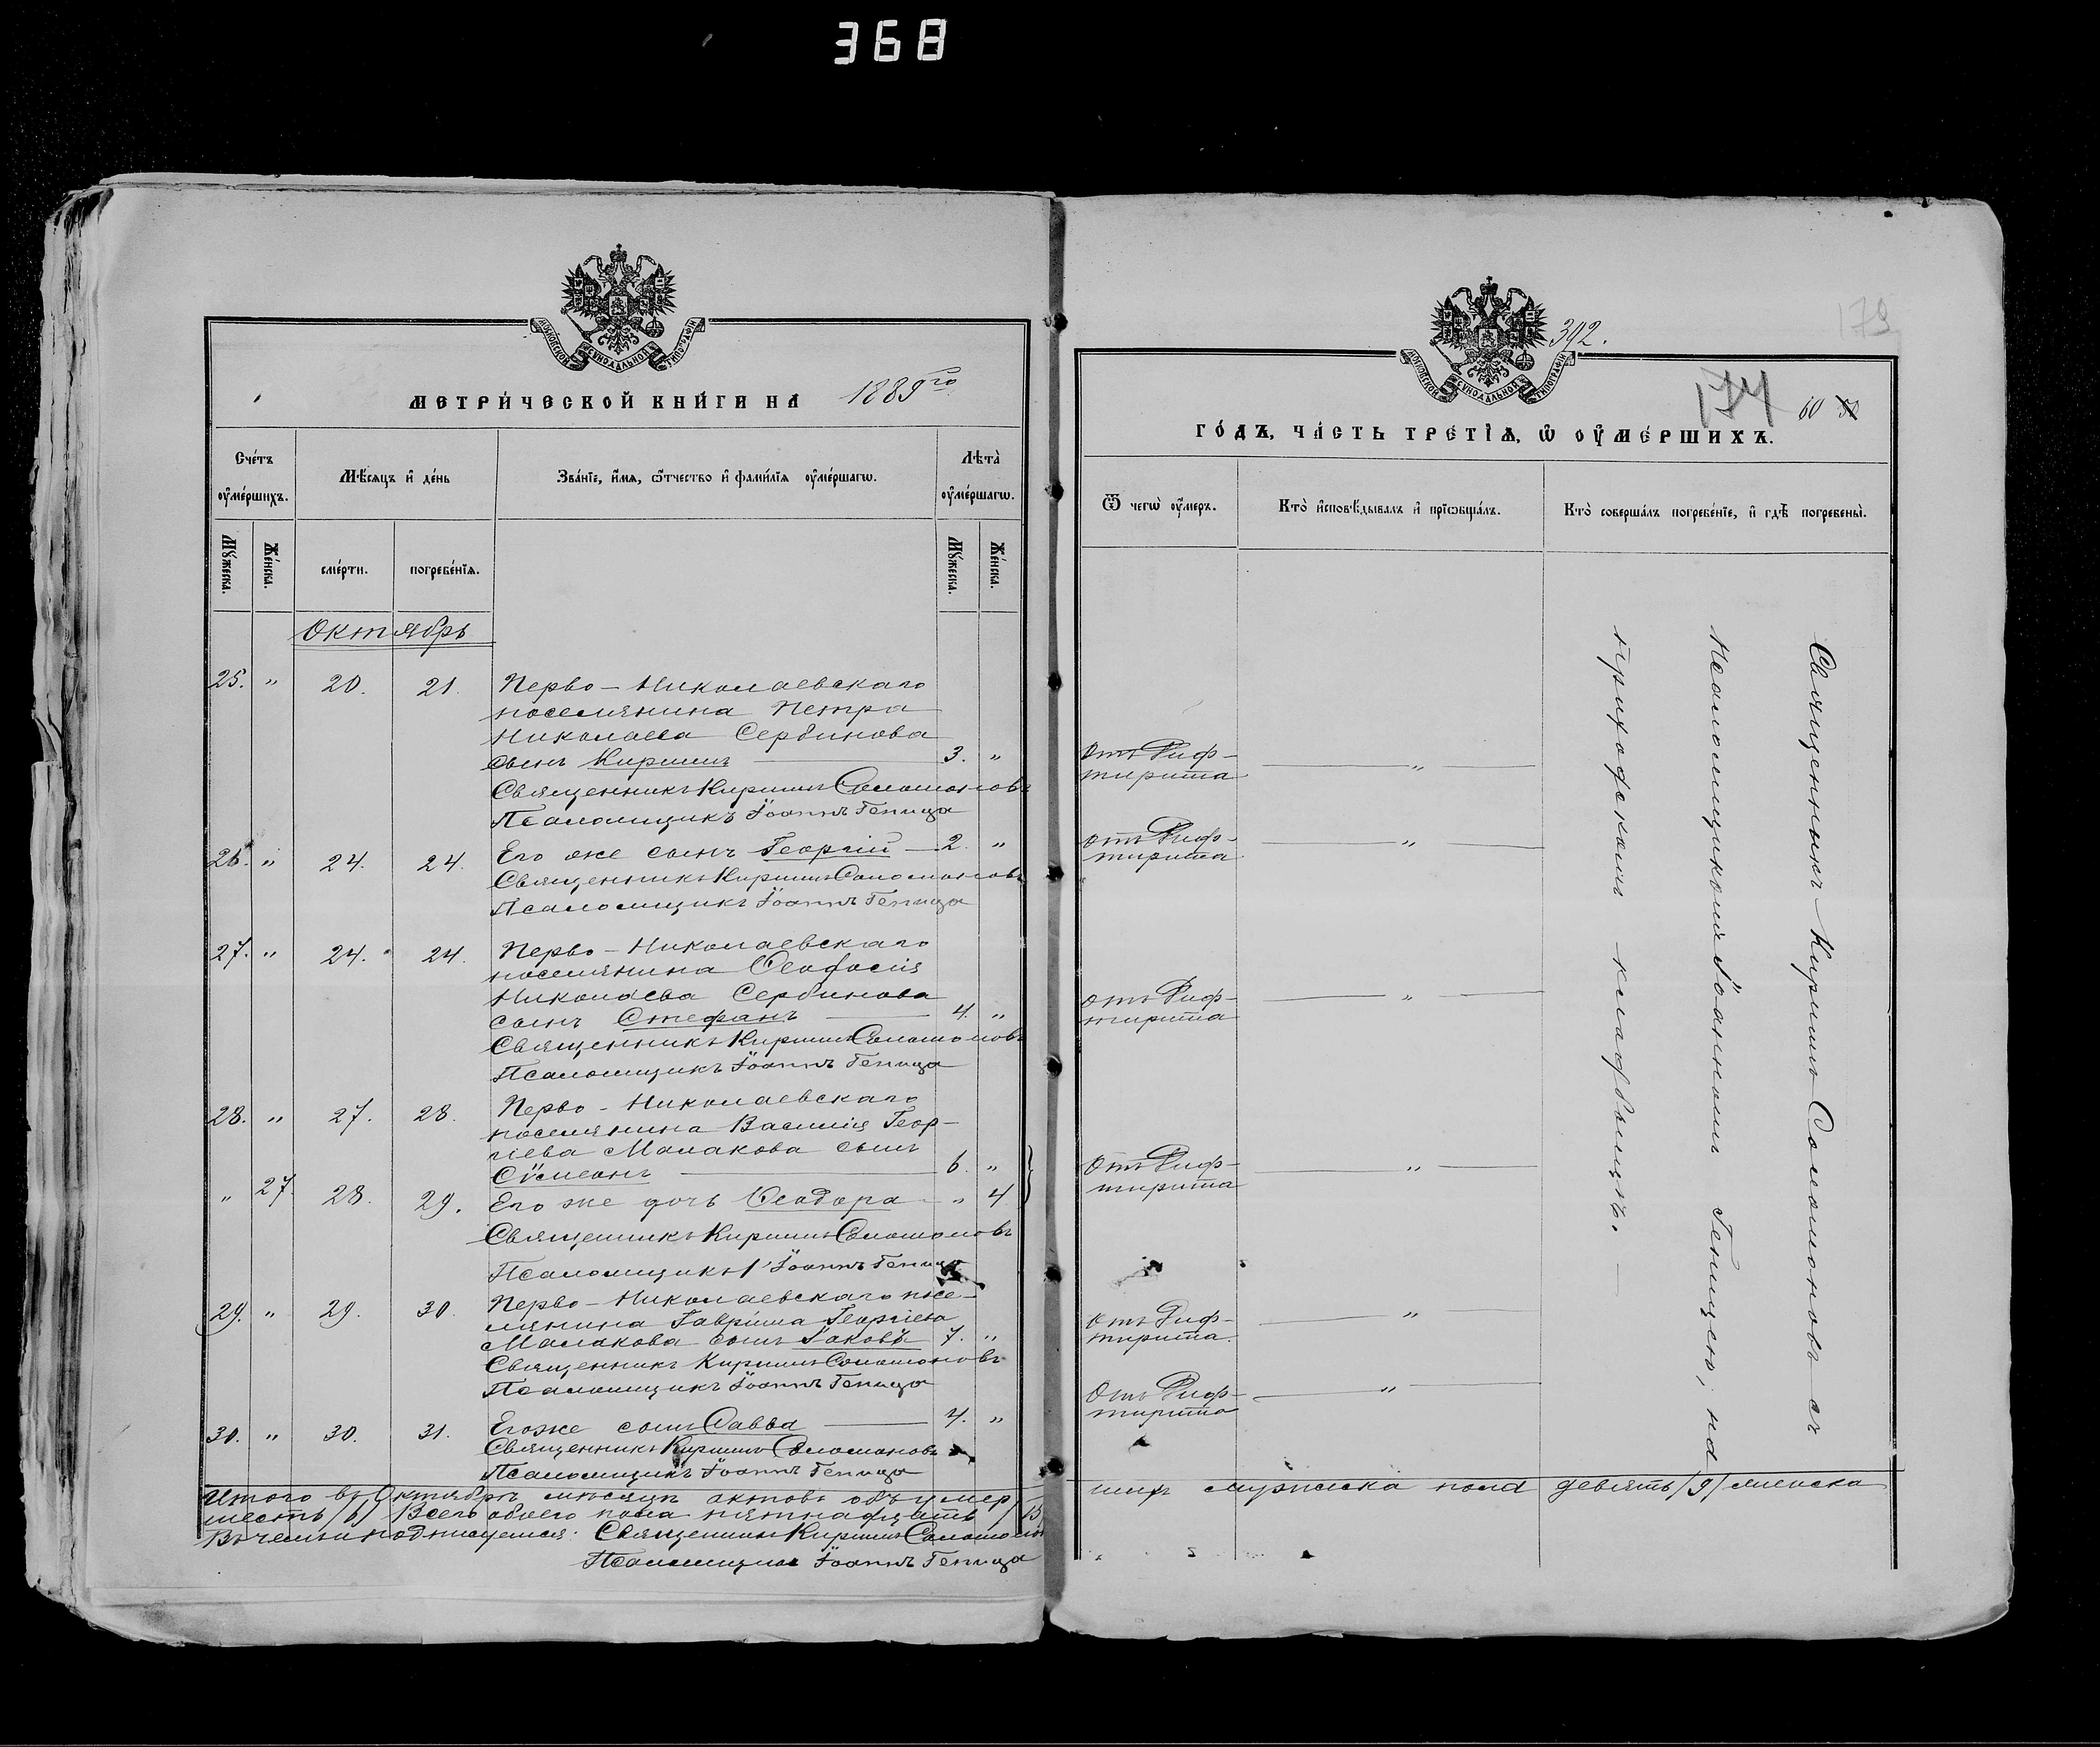 368
МОСКОВСКОЙ СѴНОДАЛЬНОЙ ТИПОГРАФІИ
МЕТРИ́ЧЕСКОЙ КНИ́ГИ НА 1889го
Сче́тъ оу҆ме́ршихъ.
Мѣ́сяцъ и҆ де́нь
Зва́нїе, и҆́мя, ѻ҆́тчество и҆ фами́лїя оу҆ме́ршагѡ.
Лѣта̀ оу҆ме́ршагѡ.
Мꙋ́жеска.
Же́нска.
сме́рти.
погребе́нїя.
Мꙋ́жеска.
Же́нска.
Октябрь
25. " 20. 21. Перво-Николаевскаго
поселянина Петра
Николаева Сербинова
сынъ Кириллъ 3. "
Священникъ Кириллъ Соломоновъ
Псаломщикъ Іоаннъ Геница
26. " 24. 24. Его же сынъ Георгій 2. "
Священникъ Кириллъ Соломоновъ
Псаломщикъ Іоаннъ Геница
27. " 24. 24. Перво-Николаевскаго
поселянина Ѳеодосія
Николаева Сербинова
сынъ Стефанъ 4. "
Священникъ Кириллъ Соломоновъ
Псаломщикъ Іоаннъ Геница
28. " 27. 28. Перво-Николаевскаго
поселянина Василія Геор-
гіева Малакова сынъ
Сѵмеонъ 6. "
" 27. 28. 29. Его же дочь Ѳеодора " 4
Священникъ Кириллъ Соломоновъ
Псаломщикъ Іоаннъ Геница
29. " 29. 30. Перво-Николаевскаго посе-
лянина Гавріила Георгіева
Малакова сынъ Іаковъ 7. "
Священникъ Кириллъ Соломоновъ
Псаломщикъ Іоаннъ Геница
30. " 30. 31. Егоже сынъ Савва 4. "
Священникъ Кириллъ Соломоновъ
Псаломщикъ Іоаннъ Геница
Итого въ Октябрѣ мѣсяцѣ актовъ объ умер
шесть /6/ Всего обоего пола пятнадцать /15
Въ чемъ и подписуемся: Священникъ Кириллъ Соломонов
Псаломщикъ Іоаннъ Геница
МОСКОВСКОЙ СѴНОДАЛЬНОЙ ТИПОГРАФІИ
392.
179
174
60 50
ГО́ДЪ, ЧА́СТЬ ТРЕ́ТІЯ, Ѡ҆ ОУ҆МЕ́РШИХЪ.
Ѿ чегѡ̀ оу҆́меръ.
Кто̀ и҆сповѣ́дывалъ и҆ прїѡбща́лъ.
Кто̀ соверша́лъ погребе́нїе, и҆ гдѣ̀ погребены̀.
Отъ Диф-
тирита "
Отъ Диф-
тирита "
Отъ Диф-
тирита "
Отъ Диф-
тирита "
Отъ Диф-
тирита. "
Отъ Диф-
тирита "
Священникъ Кириллъ Соломоновъ съ
Псаломщикомъ Іоанномъ Геницею, на
приходскомъ кладбищѣ.
шихъ мужеска пола девять /9/ женска